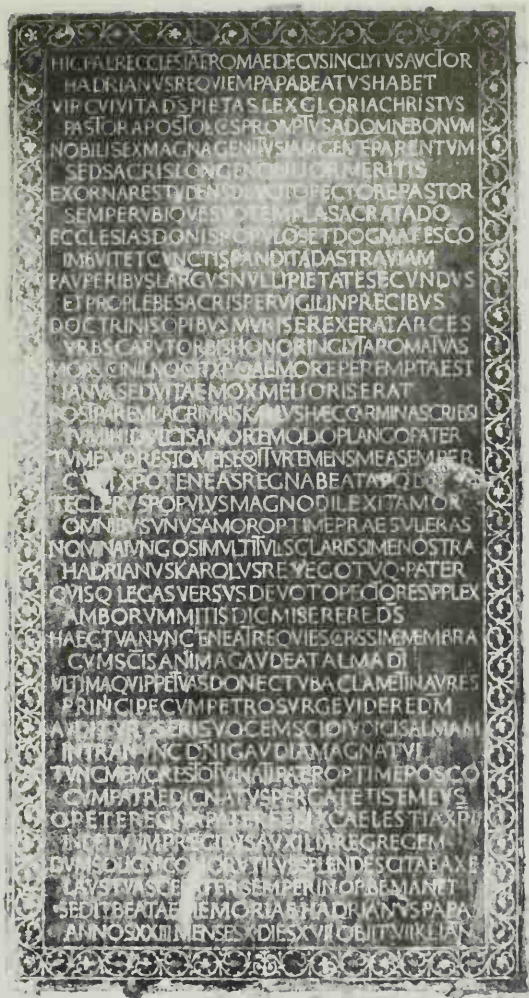 HICPATERECCLESIAEROMAEDECVSINCLYTVSAVCTOR
HADRIANVSREQVIEMPAPABEATVSHABET
VIRCVIVITADSPIETASLEXGLORIACHRISTVS
PASTORAPOSTOLCSPROMPTVSADOMNEBONVM
NOBILISEXMAGNAGENITVSIAMGENTEPARENTVM
SEDSACRISLONGENOBILIORMERITIS
EXORNARESTVDENSDEVOTOPECTOREPASTOR
SEMPERVBIQVESVOTEMPLASACRATADO
ECCLESIASDONISPOPVLOSETDOGMATESCO
IMBVITETCVNCTISPANDITADASTRAVIAM
PAVPERIBVSLARGVSNVLLIPIETATESECVNDVS
ETPROPLEBESACRISPERVIGILINPRECIBVS
DOCTRINISOPIBVSMVRISEREXERATARCES
VRBSCAPVTORBISHONORINCLYTAROMATVAS
MORSCINILNOCVITXPQAEMOREPEREMPTAEST
IANVASEDVITAEMOXMELIORISERAT
POSTPATREMLACRIMANSKARLVSHAECCARMINASCRIBSI
TVMIHIDVLCISAMORTEMODOPLANGOPATER
TVMEMORESTOMEISEQITVRTEMENSMEASEMPER
CVXPOTENEASREGNABEATAPOLI
TECLERVSPOPVLVSMAGNODILEXITAMOR
OMNIBVSVNVSAMOROPTIMEPRAESVLERAS
NOMINAIVNGOSIMVLTITVLISCLARISSIMENOSTRA
HADRIANVSKAROLVSREXEGOTVQ·PATER
QVISQLEGASVERSVSDEVOTOPECTORESVPPLEX
AMBORVMMITISDICMISEREREDS
HAECTVANVNCTENEATREQVIESCRISSIMEMEMBRA
CVMSCISANIMAGAVDEATALMADI
VLTIMAQVIPPETVASDONECTVBACLAMETINAVRES
PRINCIPECVMPETROSVRGEVIDEREDM
AVDITVRVSERISVOCEMSCIOIVDICISALMAM
INTRANVNCDNIGAVDIAMAGNATVI
TVNCMEMORESTOTVINATIPATEROPTIMEPOSCO
CVMPATREDICNATVSPERGATETISTEMEVS
OPETEREGNAPATERFELIXCAELESTIAXPI
INDETVVMPRECIBVSAVXILIAREGREGEM
DVMSOLIGNICOMORVTILVSSPLENDESCITABAXE
LAVSTVASCEPATERSEMPERINORBEMANET
SEDITBEATAEMEMORIAEHADRIANVSPAPA
ANNOSXXIIIMENSESXDIESXVIIOBIITVIIKLIAN